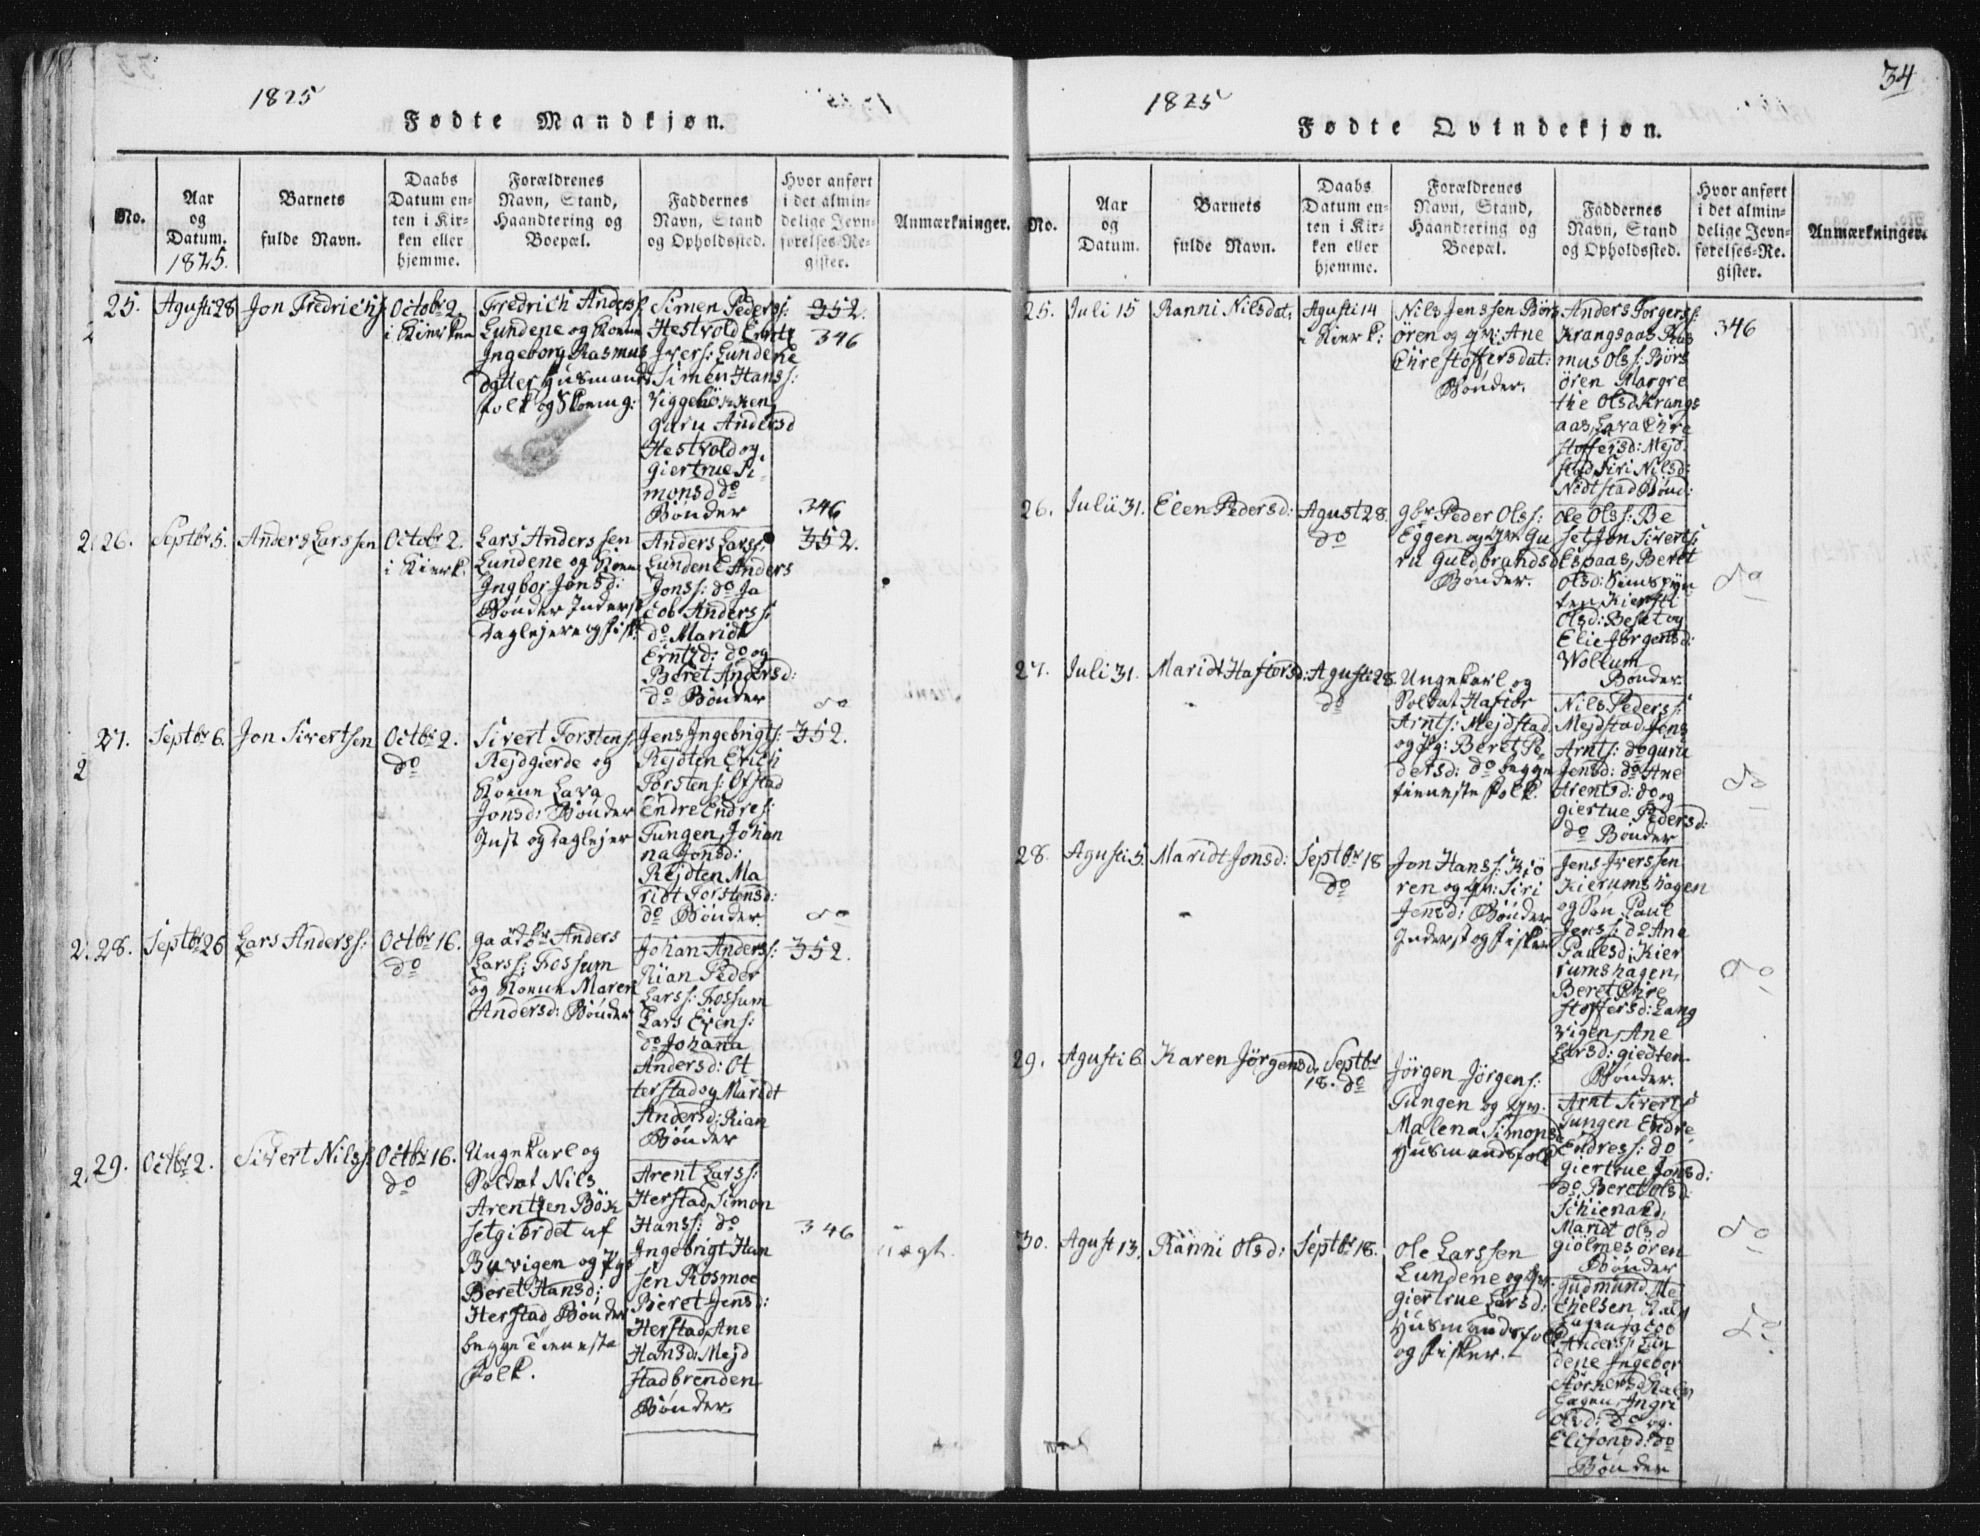 1825
Fødte Mandkjøn.
No.
Aar
og
Datum.
1825.
Barnets
fulde Navn.
Daabs
Datum en-
ten i Kir-
ken eller
hjemme.
Forældrenes
Navn, Stand,
Haandtering og
Boepæl.
Faddernes
Navn, Stand
og Opholdssted.
Hvor anført
i det almin-
delige Jevn-
førelses-Re-
gister.
Anmærkninger.
25.
Agusti 28
Jon Fredrichs:
Octobr 2.
i Kierken
Fredrich Anders:
Lundene og Konen
Ingeborg Rasmus
datter Husmands
folk og
Simen Peders:
Hestvold Erntz
Ivers: Lundene
Simen Hans:
Viggebökken
Guru Andersd
Hestvold og
Giertrue Si
monsd do
Bönder
352.
346
26.
Septbr 5.
Anders Larssen
Octobr 2.
i Kierk:
Lars Anderssen
Lundene og Konen
Ingbor Jonsd:
Bönder Inderst
Daglejere og Fisk:
Anders Larss:
Lundene Anders
Jonss: do Ja
cob Anderss:
do Maridt
Erntzd: do og
Beret Andersd:
do Bönder
346
352.
27.
Septbr 6.
Jon Sivertsen
Octbr 2.
do
Sivert Torstens:
Rejdgierde og
Konen Lava
Jonsd: Bönder
Inst og daglejer
Jens Ingebrigts:
Rejdten Erich
Torstens: Ofstad
Endre Endres:
Tungen, Johan
na Jonsd:
Rejdten Ma
ridt Torstensd:
do Bönder
do
352.
28.
Septbr 26
Lars Anderss:
Octbr 16.
do
Gaardbr Anders
Larss: Fossum
og Konen Maren
Andersd: Bönder
Johan Anderss:
Rian Peder
Larss: Fossum
Lars Evens:
do Johana
Andersd: Ot
terstad og Maridt
Andersd: Rian
Bönder
do
352.
29.
Octbr 2.
Sivert Nilss:
Octbr 16.
do
Ungekarl og
Soldat Nils
Arentzen Böx
setgierdet af
Buvigen og Pg:
Beret Hansd:
Herstad, Bönder
begge tieneste
folk.
Arent Larss:
Herstad, Simon
Hanss: do
Ingebrigt Han
sen Rosmoe
Beret Jensd:
Herstad, Ane
Hansd: Mejd
stadbrenden
Bönder.
346
uægt.
34
1825
Fødte Qvindekjøn.
No.
Aar
og
Datum.
Barnets
fulde Navn.
Daabs
Datum en-
ten i Kir-
ken eller
hjemme.
Forældrenes
Navn, Stand,
Haandtering og
Boepæl.
Faddernes
Navn, Stand
og Opholdssted.
Hvor anført
i det almin-
delige Jevn-
førelses-Re-
gister.
Anmærkninger.
25.
Juli 15
Ranni Nilsdat:
Agusti 14
i Kierk:
Nils Jenssen Börs
ören og qv: Ane
Chrestoffersdat:
Bönder.
Anders Torgerss:
Krangsaas Ras
mus Olss: Börs
ören Margre
the Olsd Krangs
aas, Lava Chre
stoffersd: Mejd
stad Siri Nilsd:
Nedtstad Bönd:
346
26.
Julii 31.
Elen Pedersd:
Agust 28.
do
Gbr Peder Olss:
Eggen og qv: Gu
ru Guldbrandsd
Bönder.
Ole Olss: Be
set Jon Siverts:
Espaas, Beret
Olsd: Simspyn
ten Kiersti
Olsd: Beset og
Elie Jörgensd:
Wollum
Bönder.
do
27.
Juli 31.
Maridt Haftorsd:
Agusti 28.
do
Ungekarl og
Soldat Haftor
Arnts: Mejdstad
og Pg: Beret Pe
dersd: do begge
tieneste folk.
Nils Peders:
Mejdstad Jens
Arnts: do Guru
Jensd: do Ane
Arentsd: do og
Giertue Pedersd:
do Bönder
do
28.
Agusti 5.
Maridt Jonsd:
Septbr 18
do
Jon Hanss: Kjö
ren og qv: Siri
Jensd: Bönder
Inderst og Fisker
Jens Iverssen
Kierumshagen
og Paul
Jenss: do Ane
Paulsd: Kier
rumshagen,
Beret Chre
stoffersd: Lang
vigen, Ane
Larsd: giedten
Bönder.
do
29.
Agusti 6.
Karen Jörgensd:
Septbr
18. do
Jörgen Jörgens:
Tungen og qv.
Malena Simonsd
Husmandsfolk
Arnt Siverts
Tungen Endre
Endress: do
Giertrue Jonsd:
do Beret Olsd:
Schienald,
Maridt Olsd
Giölmesören
Bönder
do
30.
Agust 13.
Ranni Olsd:
Septbr 18.
Ole Larssen
Lundene og qv.
Giertrue Larsd:
Husmandsfolk
og Fisker.
Gudmund Me
chelsen Saltn
Jacob
Anderss: Lun
dene Ingebor
Störkersd Saltn
Ingri
Olsd: do og
Eli Jonsd: do
Bönder
do